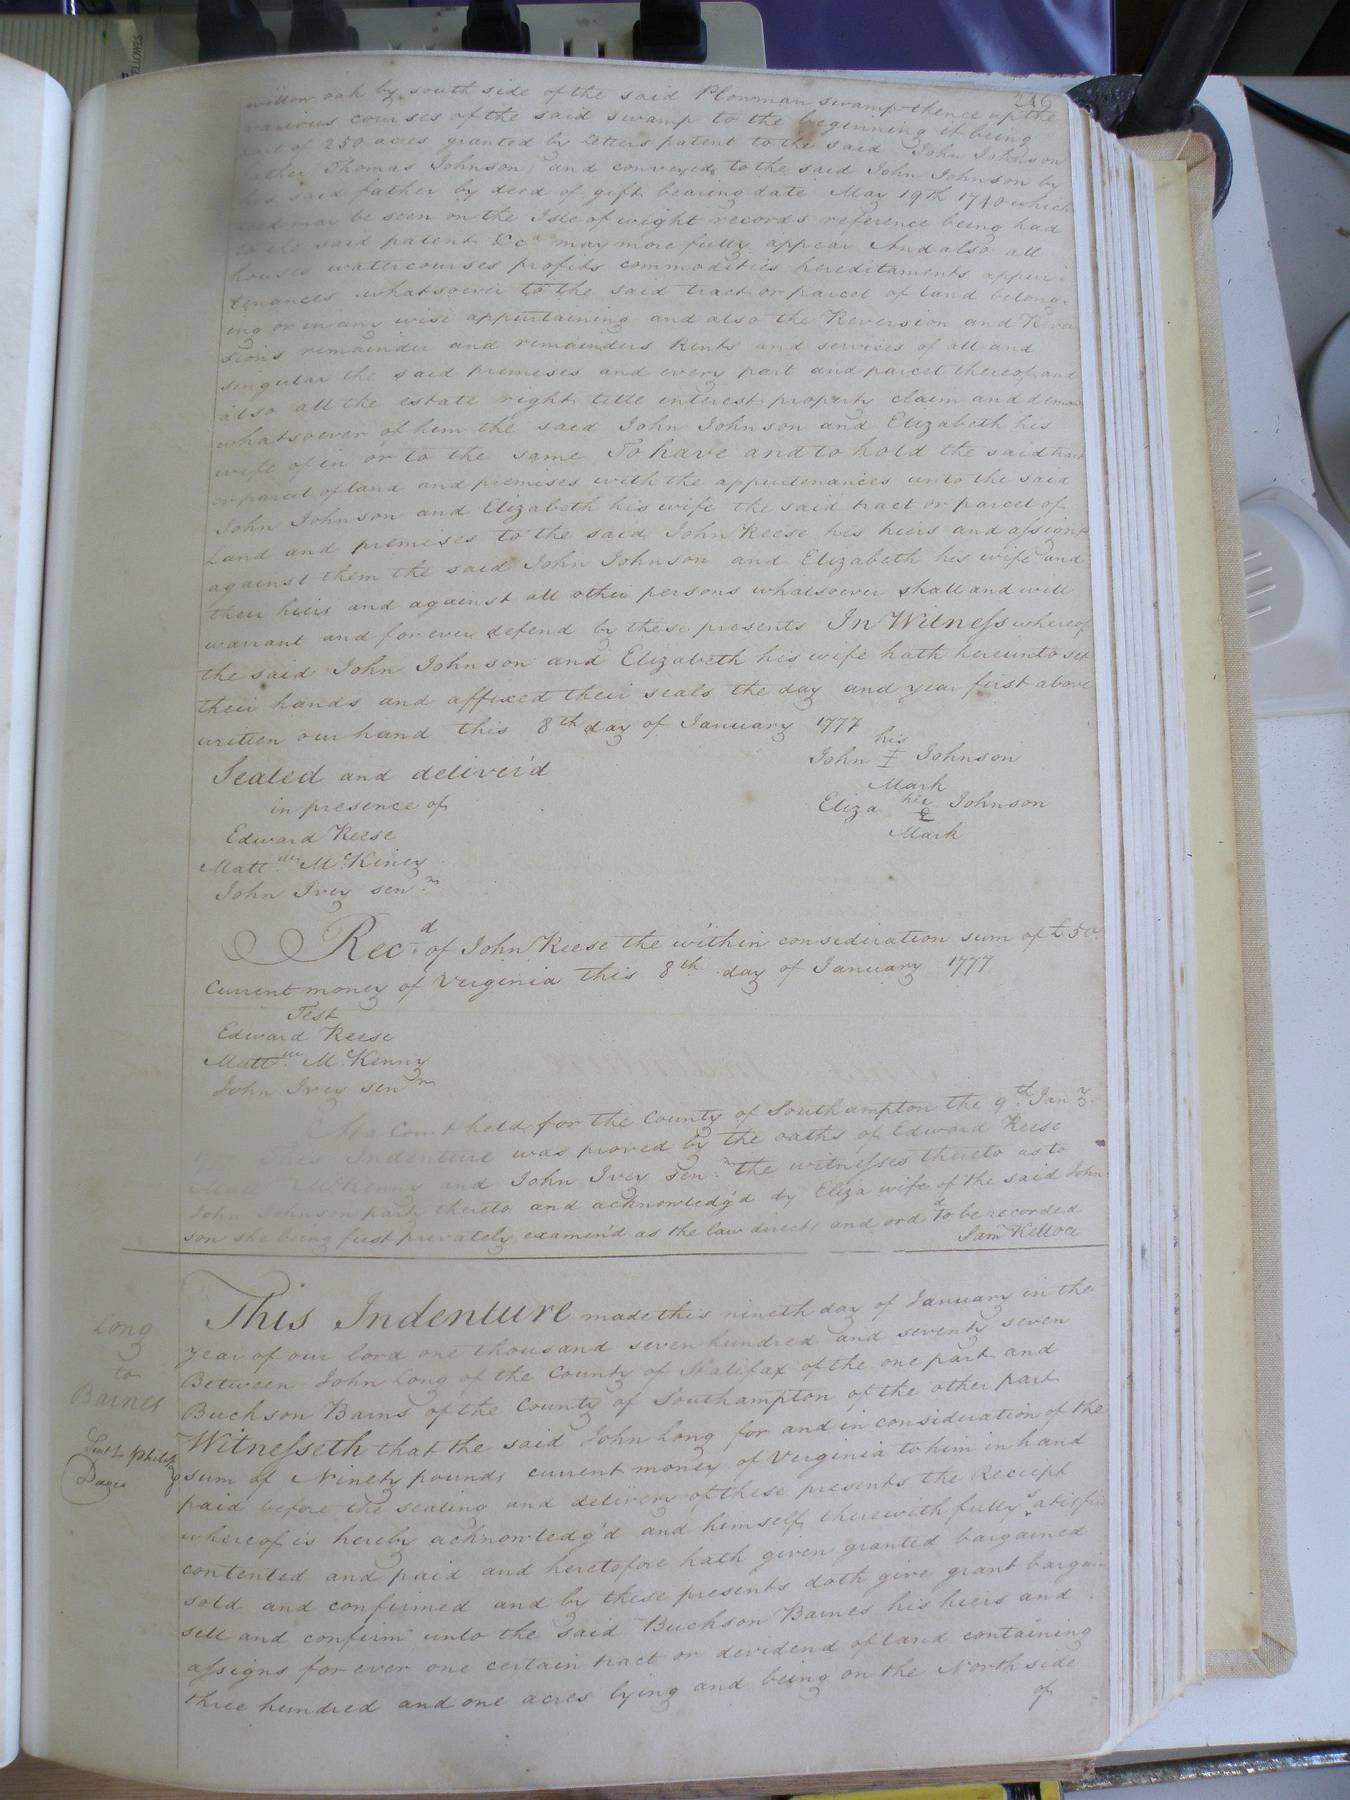 willow oak by south side of the said Plowman swamp thence up the
various courses of the said swamp to the beginning it being
part of 250 acres granted by Letters patent to the said John Johnson
father Thomas Johnson and conveyed to the said John Johnson by
his said father by deed of gift bearing date May 19th 1740 which
deed may be seen on the Isle of wight records reference being had
to the said patent &c may more fully appear And also all
houses watercourses profits commodities hereditaments appur-
tenances whatsoever to the said tract or parcel of land belong-
ing or in any wise appurtaining and also the Reversion and Rever
sions remainder and remainders Rents and services of all and
singular the said premeses and every part and parcel thereof and
also all the estate right title interest property claim and deman
whatsoever of him the said John Johnson and Elizabeth his
wife of in or to the same To have and to hold the said tract
or parcel of land and premises with the appurtenances unto the said
John Johnson and Elizabeth his wife the said tract or parcel of
Land and premises to the said John Reese his heirs and assigns
against them the said John Johnson and Elizabeth his wife and
their heirs and against all other persons whatsoever shall and will
warrant and for ever defend by these presents In Witness whereof
the said John Johnson and Elizabeth his wife hath hereunto set
their hands and affixed their seals the day and year first above
written our hand this 8th day of January 1777
his
John I Johnson
Mark
Sealed and deliver'd
in presence of
her
Eliza E Johnson
Mark
Edward Reese
Mattw McKiney
John Ivey senr
Recd of John Reese the within consideration sum of £50
Current money of Verginia this 8th day of January 1777
Test
Edward Reese
Mattw McKenny
John Ivey senr
At a Court held for the County of Southampton the 9th Jany
This Indenture was proved by the oaths of Edward Reese
Mattw McKenny and John Ivey senr the witnesses thereto as to
John Johnson party thereto and acknowledg'd by Eliza wife of the said John-
son she being first privately examin'd as the law directs and ordd to be recorded
Saml Kelloe
Long
to
Barnes
Philip
This Indenture made this nineth day of January in the
year of our lord one thousand seven hundred and seventy seven
Between John Long of the County of Halifax of the one part and
Buckson Barns of the County of Southampton of the other part
Witnesseth that the said John Long for and in consideration of the
sum of Ninety pounds current money of Verginia to him in hand
paid before the sealing and delivery of these presents the Reciept
whereof is hereby acknowledg'd and himself therewith fully satisfied
contented and paid and heretofore hath given granted bargained
sold and confirmed and by these presents doth give grant bargain
sell and confirm unto the said Buckson Barnes his heirs and
assigns for ever one certain tract or devidend of land containing
three hundred and one acres lying and being on the North side
of